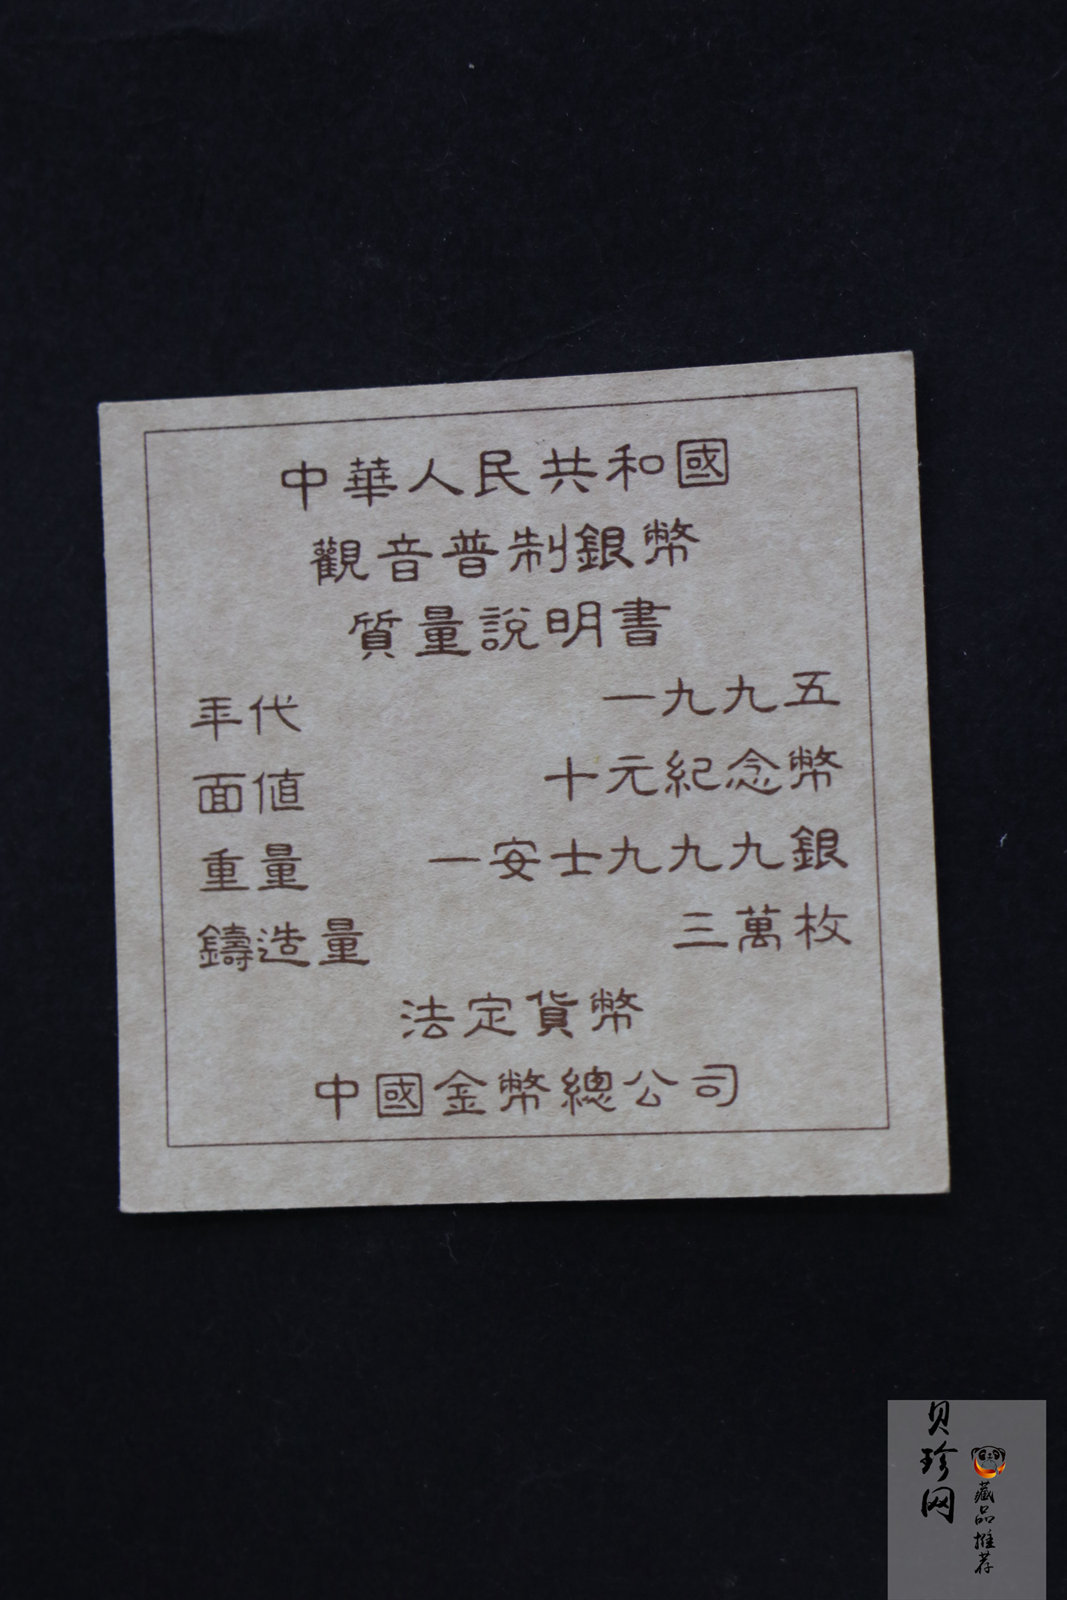 中華人民共和國
觀音普制銀幣
質量說明書
年代 一九九五
面值 十元紀念幣
重量 一安士九九九銀
鑄造量 三萬枚
法定貨幣
中國金幣總公司
贝珍网
藏品推荐